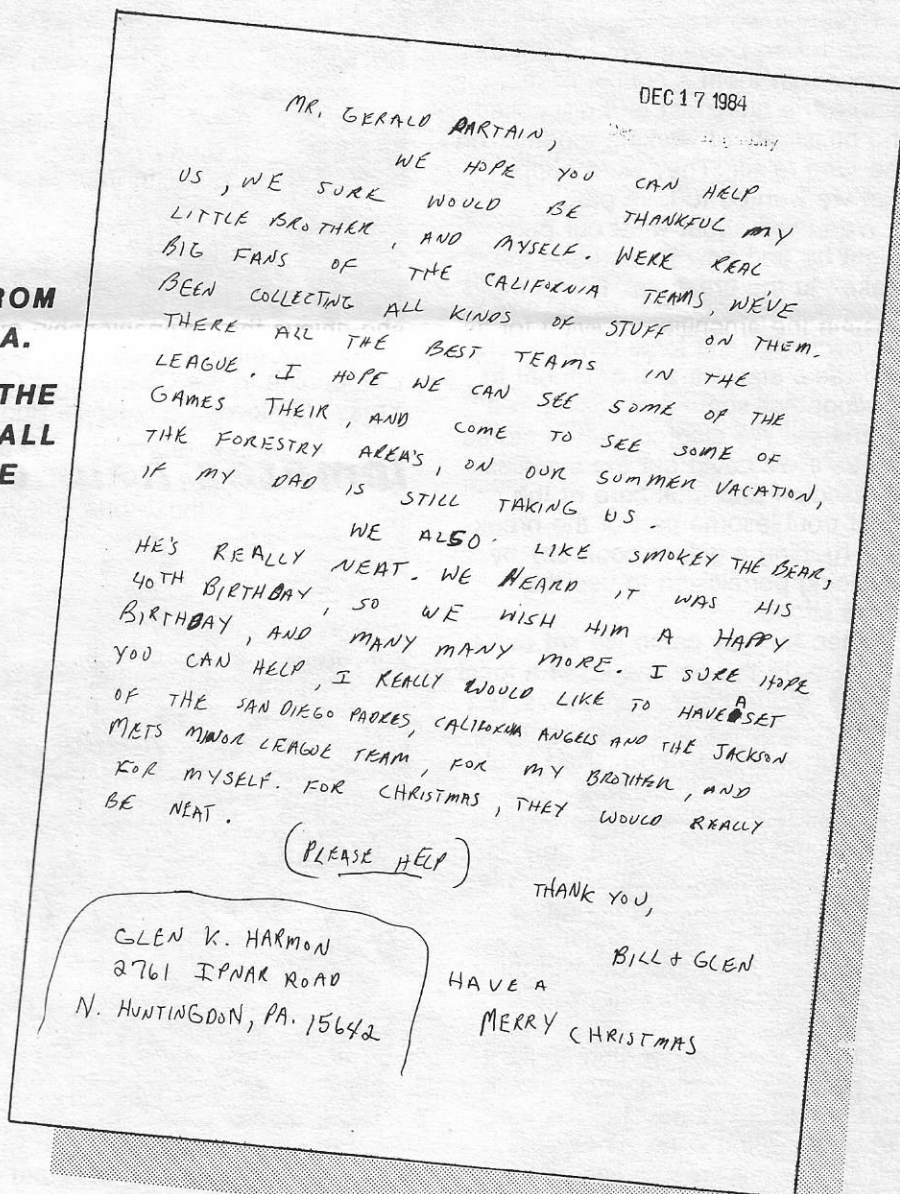 ROM
A.
THE
ALL
E
DEC 17 1984
MR. GERALD PARTAIN,
WE HOPE YOU CAN HELP
US, WE SURE WOULD BE THANKFUL MY
LITTLE BROTHER, AND MYSELF. WERE REAL
BIG FANS OF THE CALIFORNIA TEAMS, WE'VE
BEEN COLLECTING ALL KINDS OF STUFF ON THEM.
THERE ALL THE BEST TEAMS IN THE
LEAGUE. I HOPE WE CAN SEE SOME OF THE
GAMES THEIR, AND COME TO SEE SOME OF
THE FORESTRY AREA'S, ON OUR SUMMER VACATION,
IF MY DAD IS STILL TAKING US.
WE ALSO LIKE SMOKEY THE BEAR,
HE'S REALLY NEAT. WE HEARD IT WAS HIS
40TH BIRTHDAY, SO WE WISH HIM A HAPPY
BIRTHDAY, AND MANY MANY MORE. I SURE HOPE
YOU CAN HELP, I REALLY WOULD LIKE TO HAVE A SET
OF THE SAN DIEGO PADRES, CALIFORNIA ANGELS AND THE JACKSON
METS MINOR LEAGUE TEAM, FOR MY BROTHER, AND
FOR MYSELF. FOR CHRISTMAS, THEY WOULD REALLY
BE NEAT.
(PLEASE HELP)
THANK YOU,
BILL & GLEN
HAVE A
MERRY CHRISTMAS
GLEN K. HARMON
2761 IPNAR ROAD
N. HUNTINGDON, PA. 15642